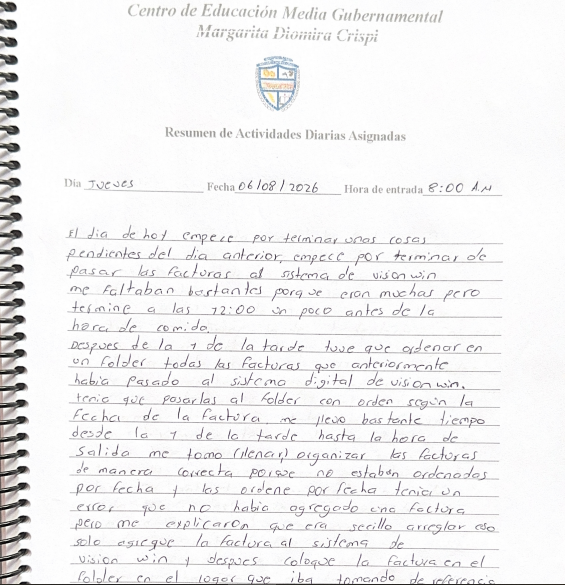 Centro de Educación Media Gubernamental
Margarita Diomira Crispi
Resumen de Actividades Diarias Asignadas
Día Jueves Fecha 06/08/2026 Hora de entrada 8:00 A.M
El dia de hoy empece por terminar unas cosas
pendientes del dia anterior, empece por terminar de
pasar las facturas al sistema de vision win
me faltaban bastantes porque eran muchas pero
termine a las 12:00 un poco antes de la
hora de comida.
Despues de la 1 de la tarde tuve que ordenar en
un folder todas las facturas que anteriormente
habia pasado al sistema digital de vision win.
tenia que pasarlas al folder con orden según la
fecha de la factura. me llevo bastante tiempo
desde la 1 de la tarde hasta la hora de
salida me tomo (llenar) organizar las facturas
de manera correcta porque no estaban ordenadas
por fecha y las ordene por fecha tenia un
error que no habia agregado una factura
pero me explicaron que era secillo arreglar eso
solo agregue la factura al sistema de
vision win y despues coloque la factura en el
folder en el lugar que iba tomando de referencia